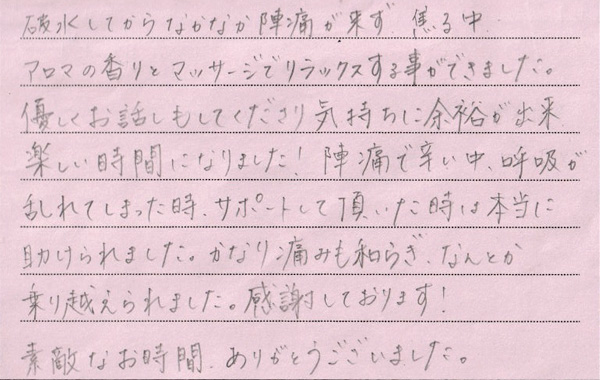 破水してからなかなか陣痛が来ず 焦る中
アロマの香りとマッサージでリラックスする事ができました。
優しくお話しもしてくださり気持ちに余裕が出来
楽しい時間になりました！ 陣痛で辛い中、呼吸が
乱れてしまった時、サポートして頂いた時は本当に
助けられました。かなり痛みも和らぎ、なんとか
乗り越えられました。感謝しております！
素敵なお時間、ありがとうございました。